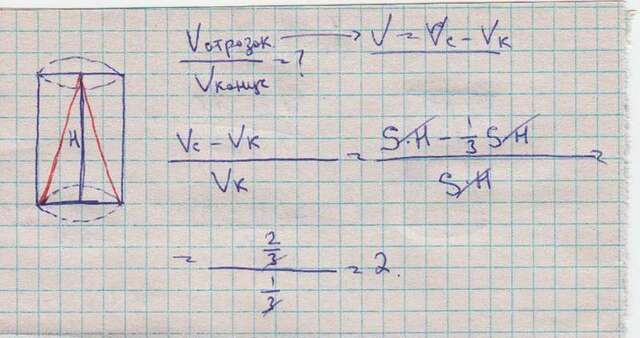 Vотрозок / Vконус = ? → V = Vc - Vк
H
(Vc - Vк) / Vк = (S·H - 1/3 S·H) / (S·H) =
= (2/3) / (1/3) = 2.